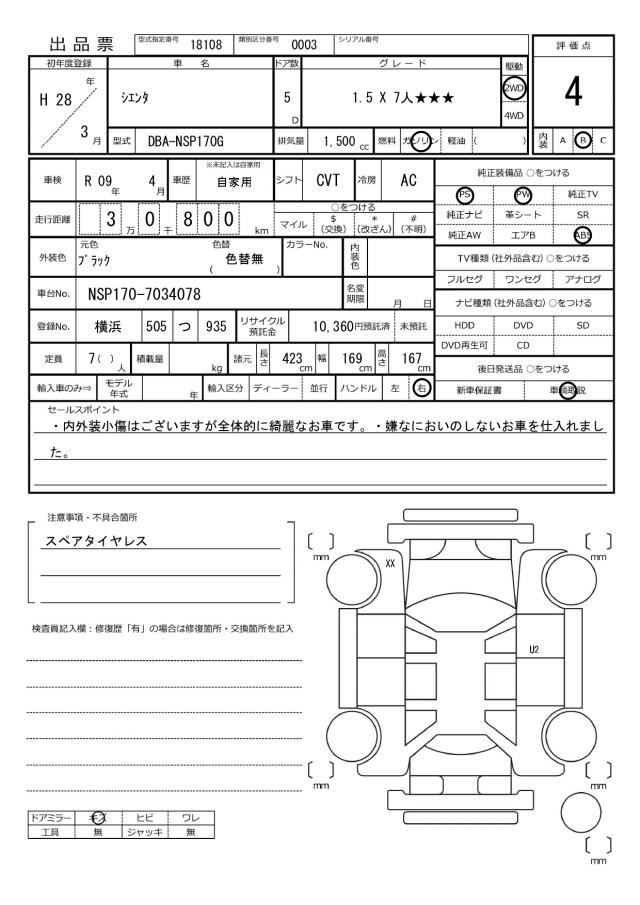 出品票 型式指定番号 18108 類別区分番号 0003 シリアル番号 評価点
初年度登録 車名 ドア数 グレード 駆動 4
H 28 年 3 月 シエンタ 5 D 1.5 X 7人★★★ 2WD 4WD
型式 DBA-NSP170G 排気量 1,500 cc 燃料 ガソリン 軽油 ( ) 内装 A B C
車検 R 09 年 4 月 車歴 ※未記入は自家用 自家用 シフト CVT 冷房 AC 純正装備品 ○をつける
PS PW 純正TV
走行距離 3 万 0 千 8 0 0 km ○をつける
マイル $ (交換) * (改ざん) # (不明)
純正ナビ 革シート SR
純正AW エアB ABS
外装色 元色 ブラック 色替 ( 色替無 ) カラーNo. 内装色
TV種類 (社外品含む) ○をつける
フルセグ ワンセグ アナログ
車台No. NSP170-7034078 名変期限 月 日
ナビ種類 (社外品含む) ○をつける
登録No. 横浜 505 つ 935 リサイクル預託金 10,360円預託済 未預託
HDD DVD SD
DVD再生可 CD
定員 7 ( ) 人 積載量 kg 諸元 長さ 423 cm 幅 169 cm 高さ 167 cm
後日発送品 ○をつける
輸入車のみ⇒ モデル年式 年 輸入区分 ディーラー 並行 ハンドル 左 右
新車保証書 車輌取説
セールスポイント
・内外装小傷はございますが全体的に綺麗なお車です。・嫌なにおいのしないお車を仕入れまし
た。
注意事項・不具合箇所
スペアタイヤレス
検査員記入欄：修復歴「有」の場合は修復箇所・交換箇所を記入
〔 〕mm 〔 〕mm
XX
U2
〔 〕mm 〔 〕mm
〔 〕mm
ドアミラー キズ ヒビ ワレ
工具 無 ジャッキ 無